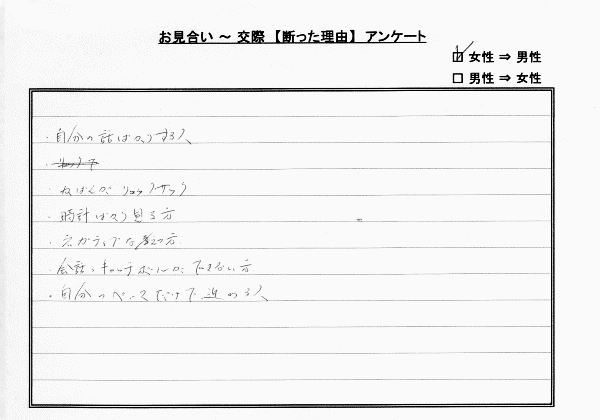 お見合い ～ 交際 【断った理由】 アンケート
☑ 女性 ⇒ 男性
□ 男性 ⇒ 女性
・自分の話ばかりする人
・かばんが、リュックサック
・時計ばかり見る方
・ネガティブな方
・会話、キャッチボールが、できない方
・自分のペースだけで進める人